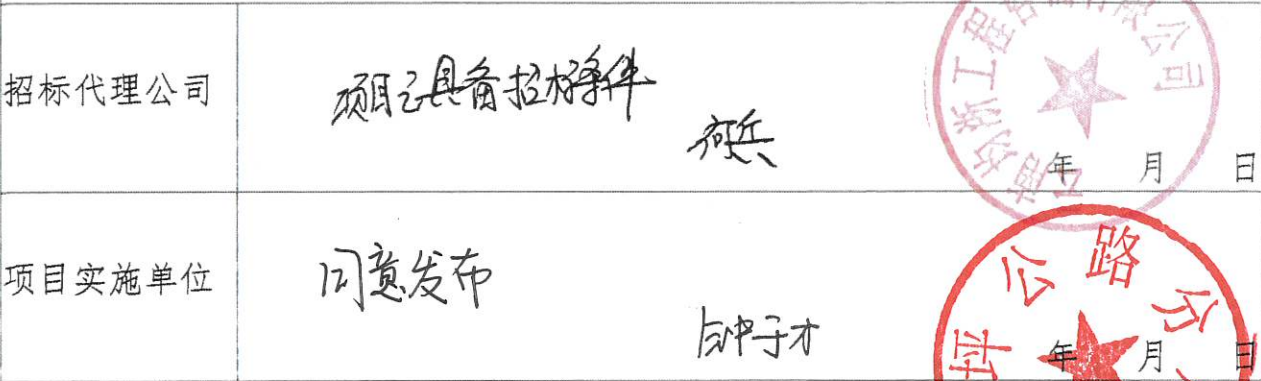 招标代理公司
项目已具备招标条件
年 月 日
项目实施单位
同意发布
公路分
年 月 日